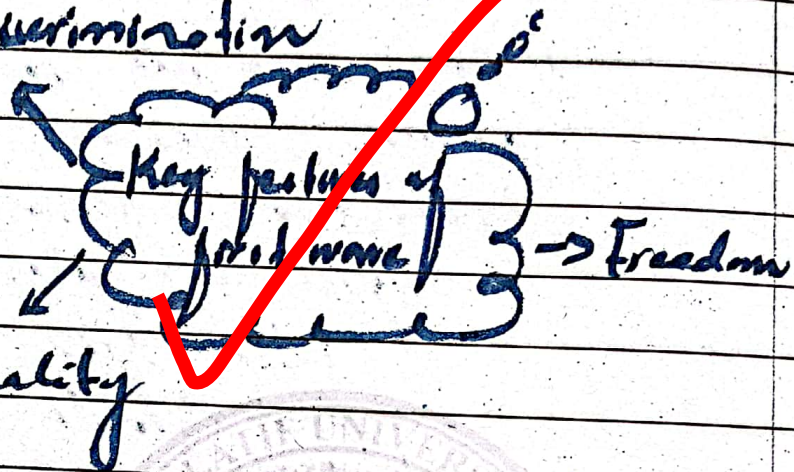 crimination
Key features of
first wave
-> Freedom
ality
UNIVER